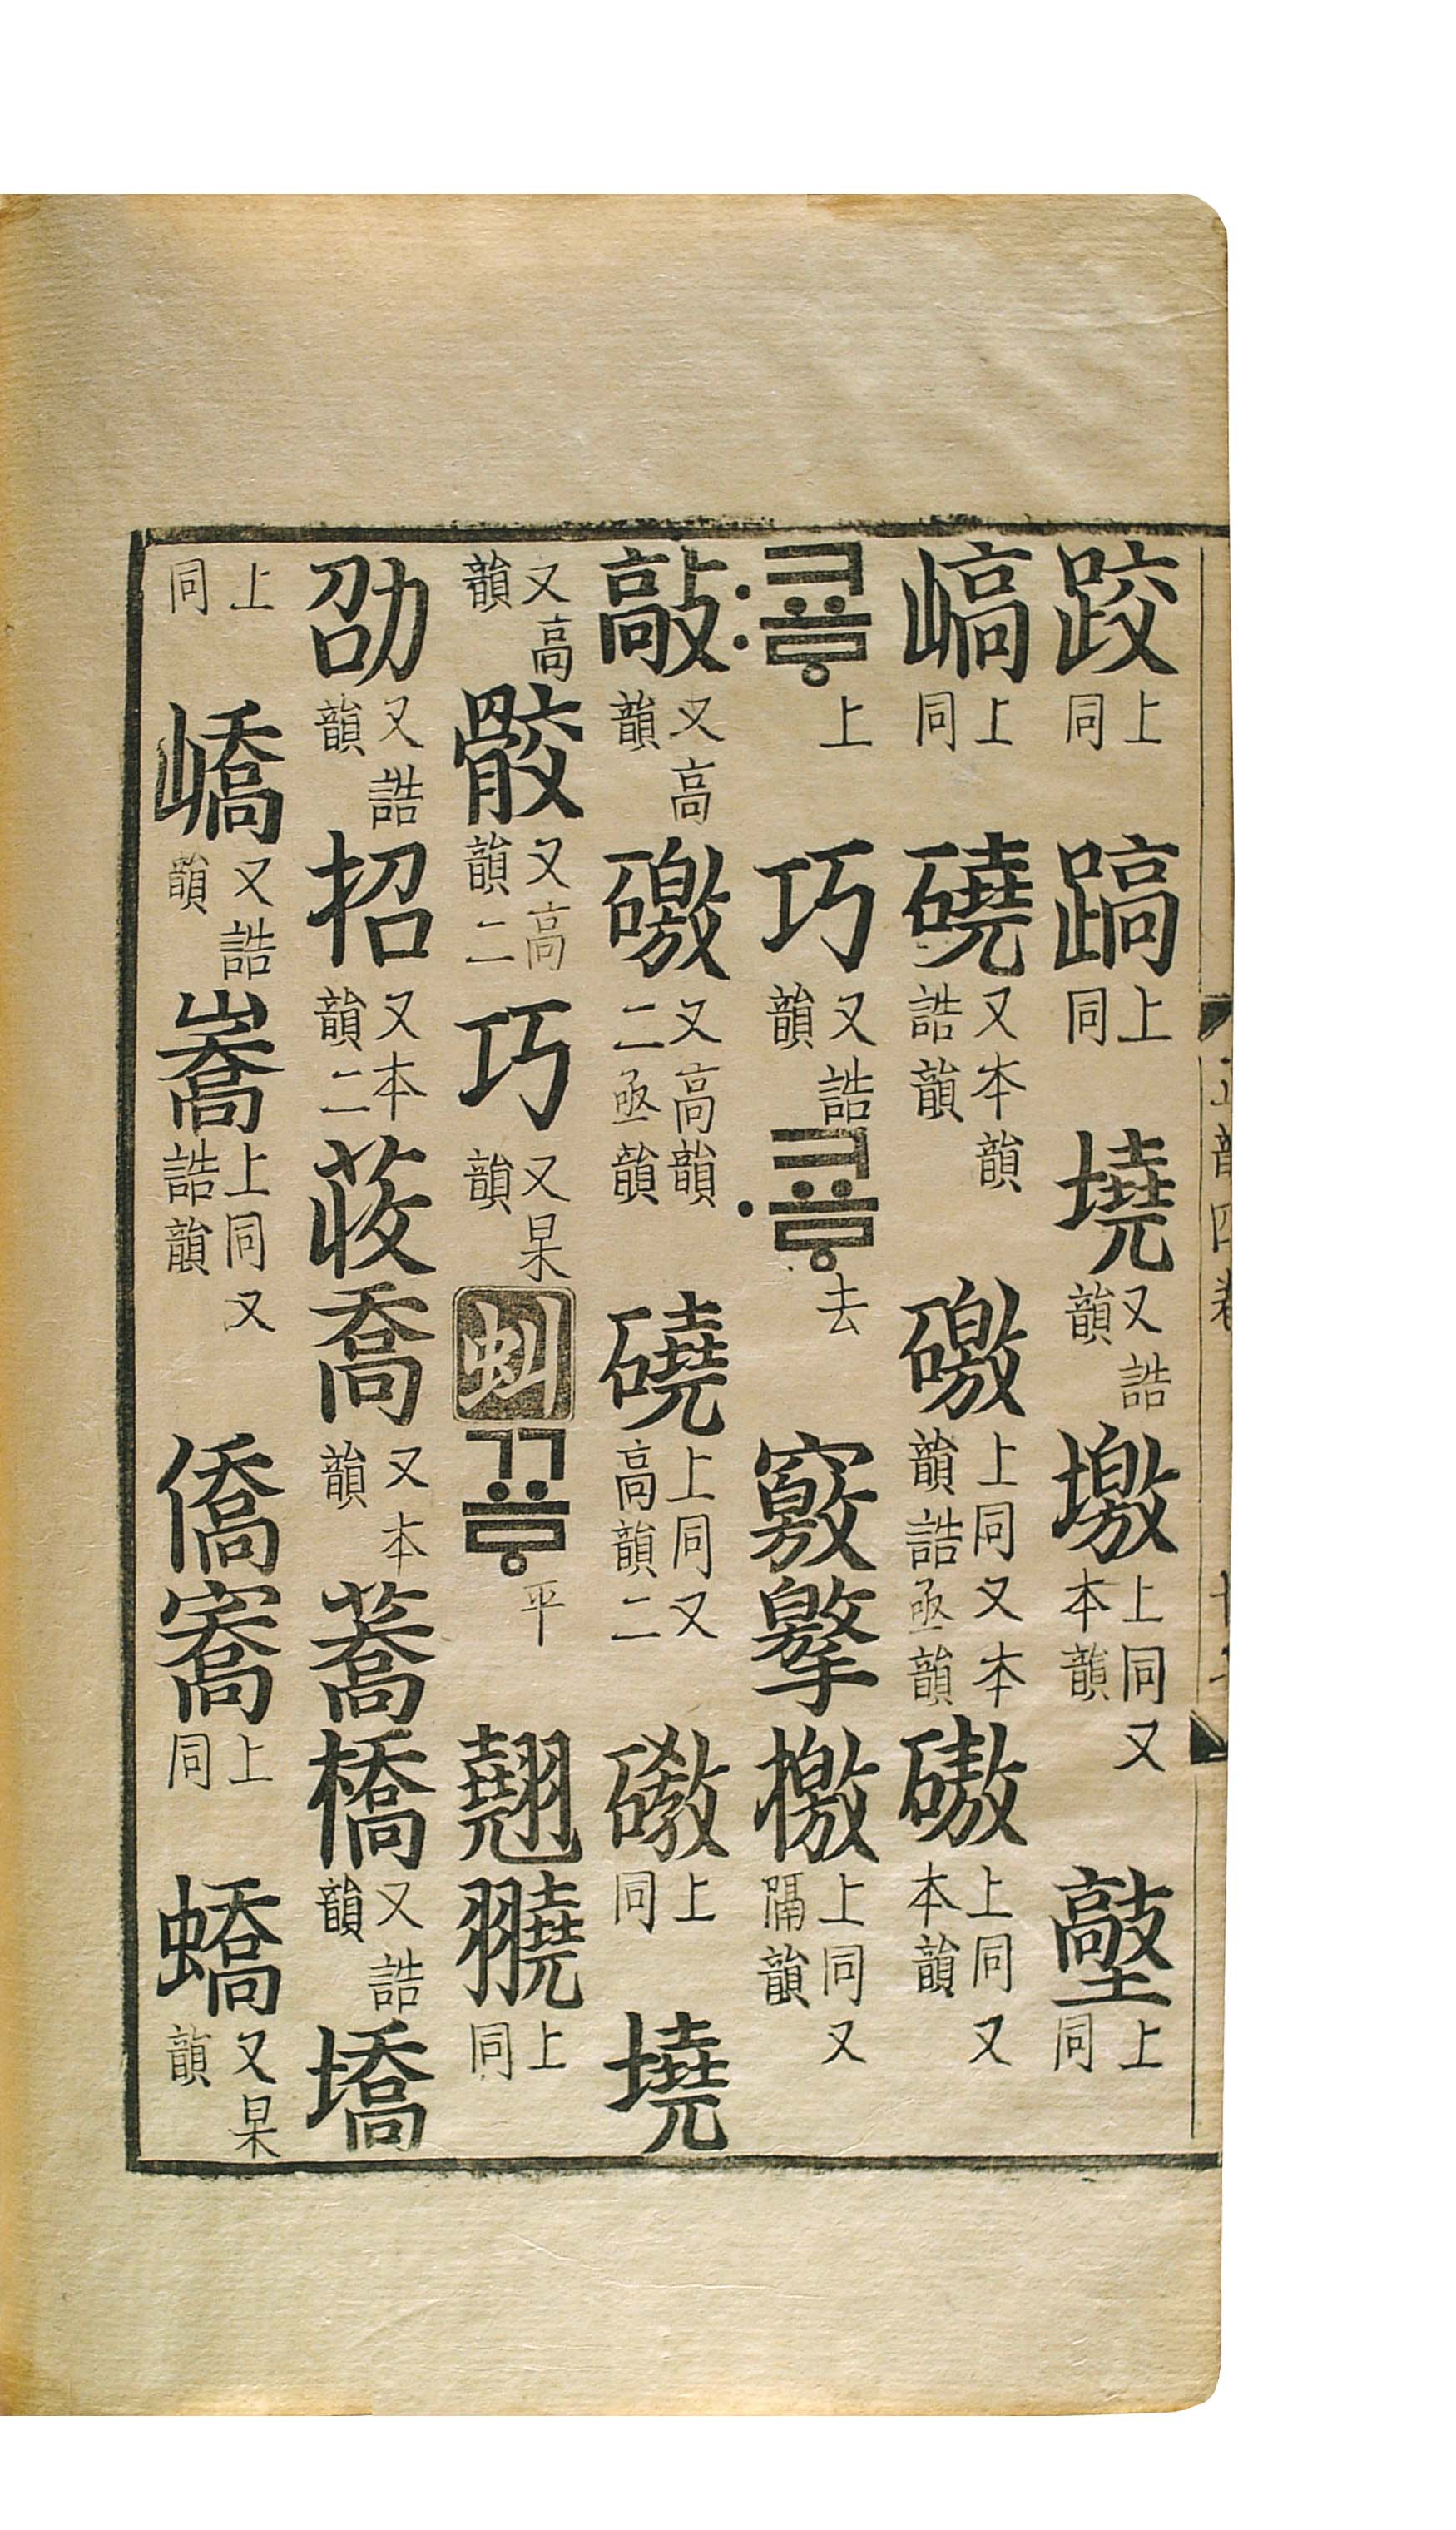 跤上同 上同 墝又誥韻 墽上同又本韻 上同
嵪上同 磽又本韻誥韻 礉上同又本韻誥亟韻 磝上同又本韻
〯쿄ᇢ上 巧又誥韻 〮쿄ᇢ去 竅 檄上同又隔韻
敲又高韻 礉又高韻二亟韻 磽上同又高韻二 上同 墝
又高韻 骹又高韻二 巧又杲韻 虯 꾜ᇢ平 翹 上同
劭又誥韻 招又本韻二 荍 喬又本韻 蕎 橋又誥韻 墧
上同 嶠又誥韻 上同又誥韻 僑 㝯上同 蟜又杲韻